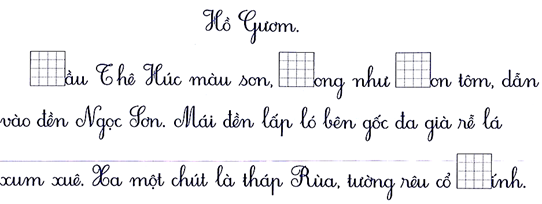 Hồ Gươm.
ầu Thê Húc màu son, ong như on tôm, dẫn
vào đền Ngọc Sơn. Mái đền lấp ló bên gốc đa già rễ lá
xum xuê. Xa một chút là tháp Rùa, tường rêu cổ ính.